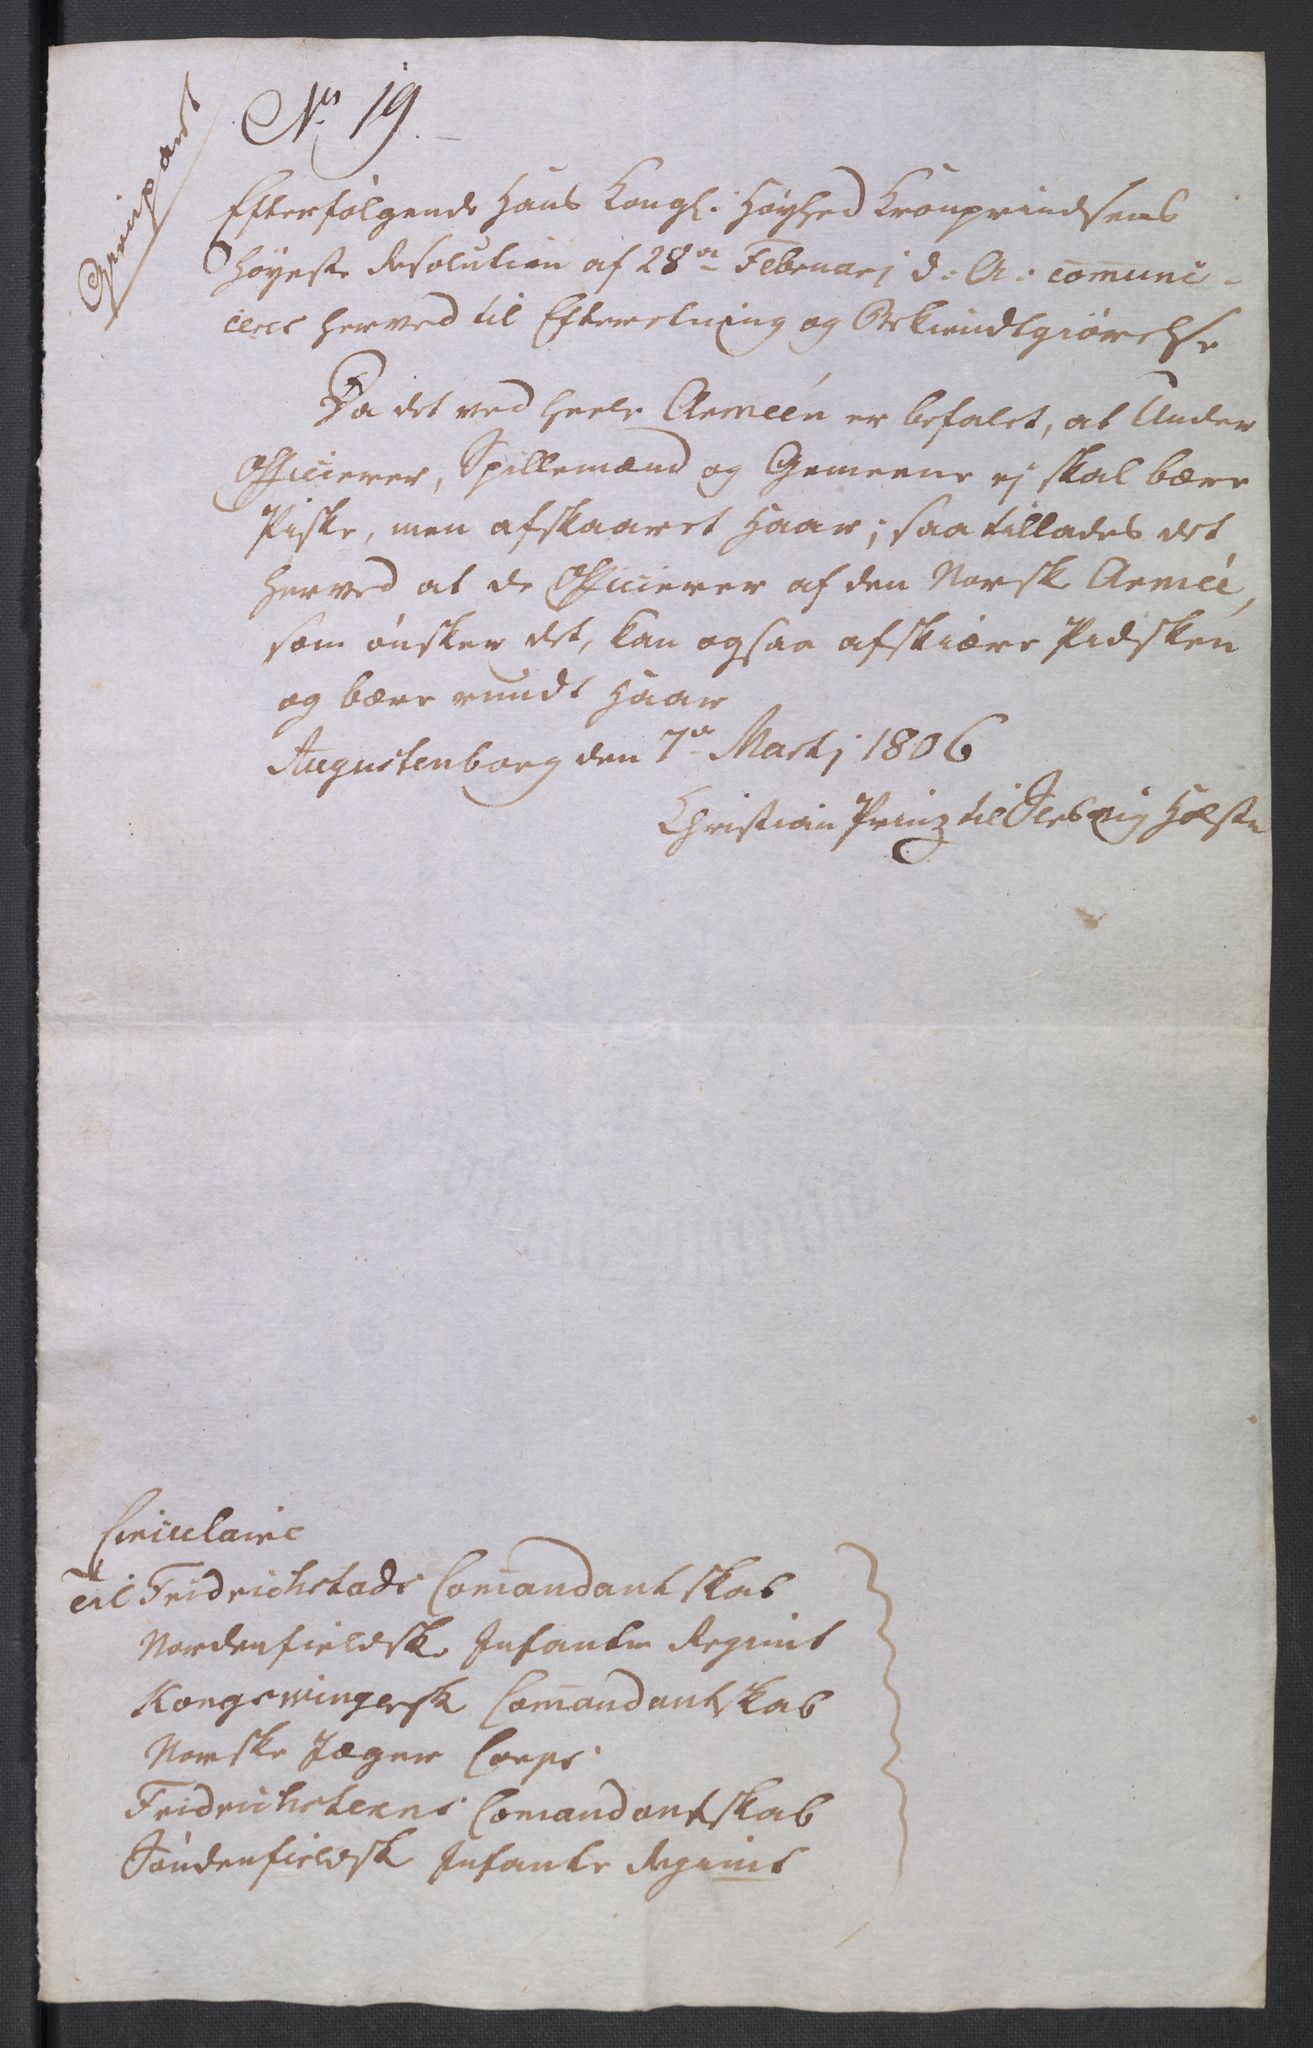 No 19.
Efterfølgende Hans Kongl: Høyhed Kronprindsens
Høyeste Resolution af 28de Februarj d: A: com̄uni-
ceres herved til Efterretning og Bekiendtgiørelse
Da det ved heele Armeén er befalet, at Under
Officierer, Spillemænd og Gemeene ej skal bære
Piske, men afskaaret Haar; saa tillades det
herved at de Officierer af den Norske Armée,
som ønsker det, kan ogsaa afskiære Pidsken
og bære rundt Haar
Augustenborg den 7de Martj 1806
Christian Prinz til Slesvig Holsten
Circulaire
Til Fridrichstads Com̄andantskab
Nordenfieldske Infanterie Regimt
Kongsvingersk Com̄andantskab
Norske Jæger Corps
Fridrichsteens Com̄andantskab
Søndenfieldsk Infanterie Regimt